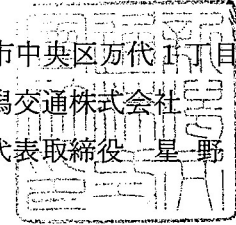 市中央区万代1丁目
潟交通株式会社
代表取締役 星 野